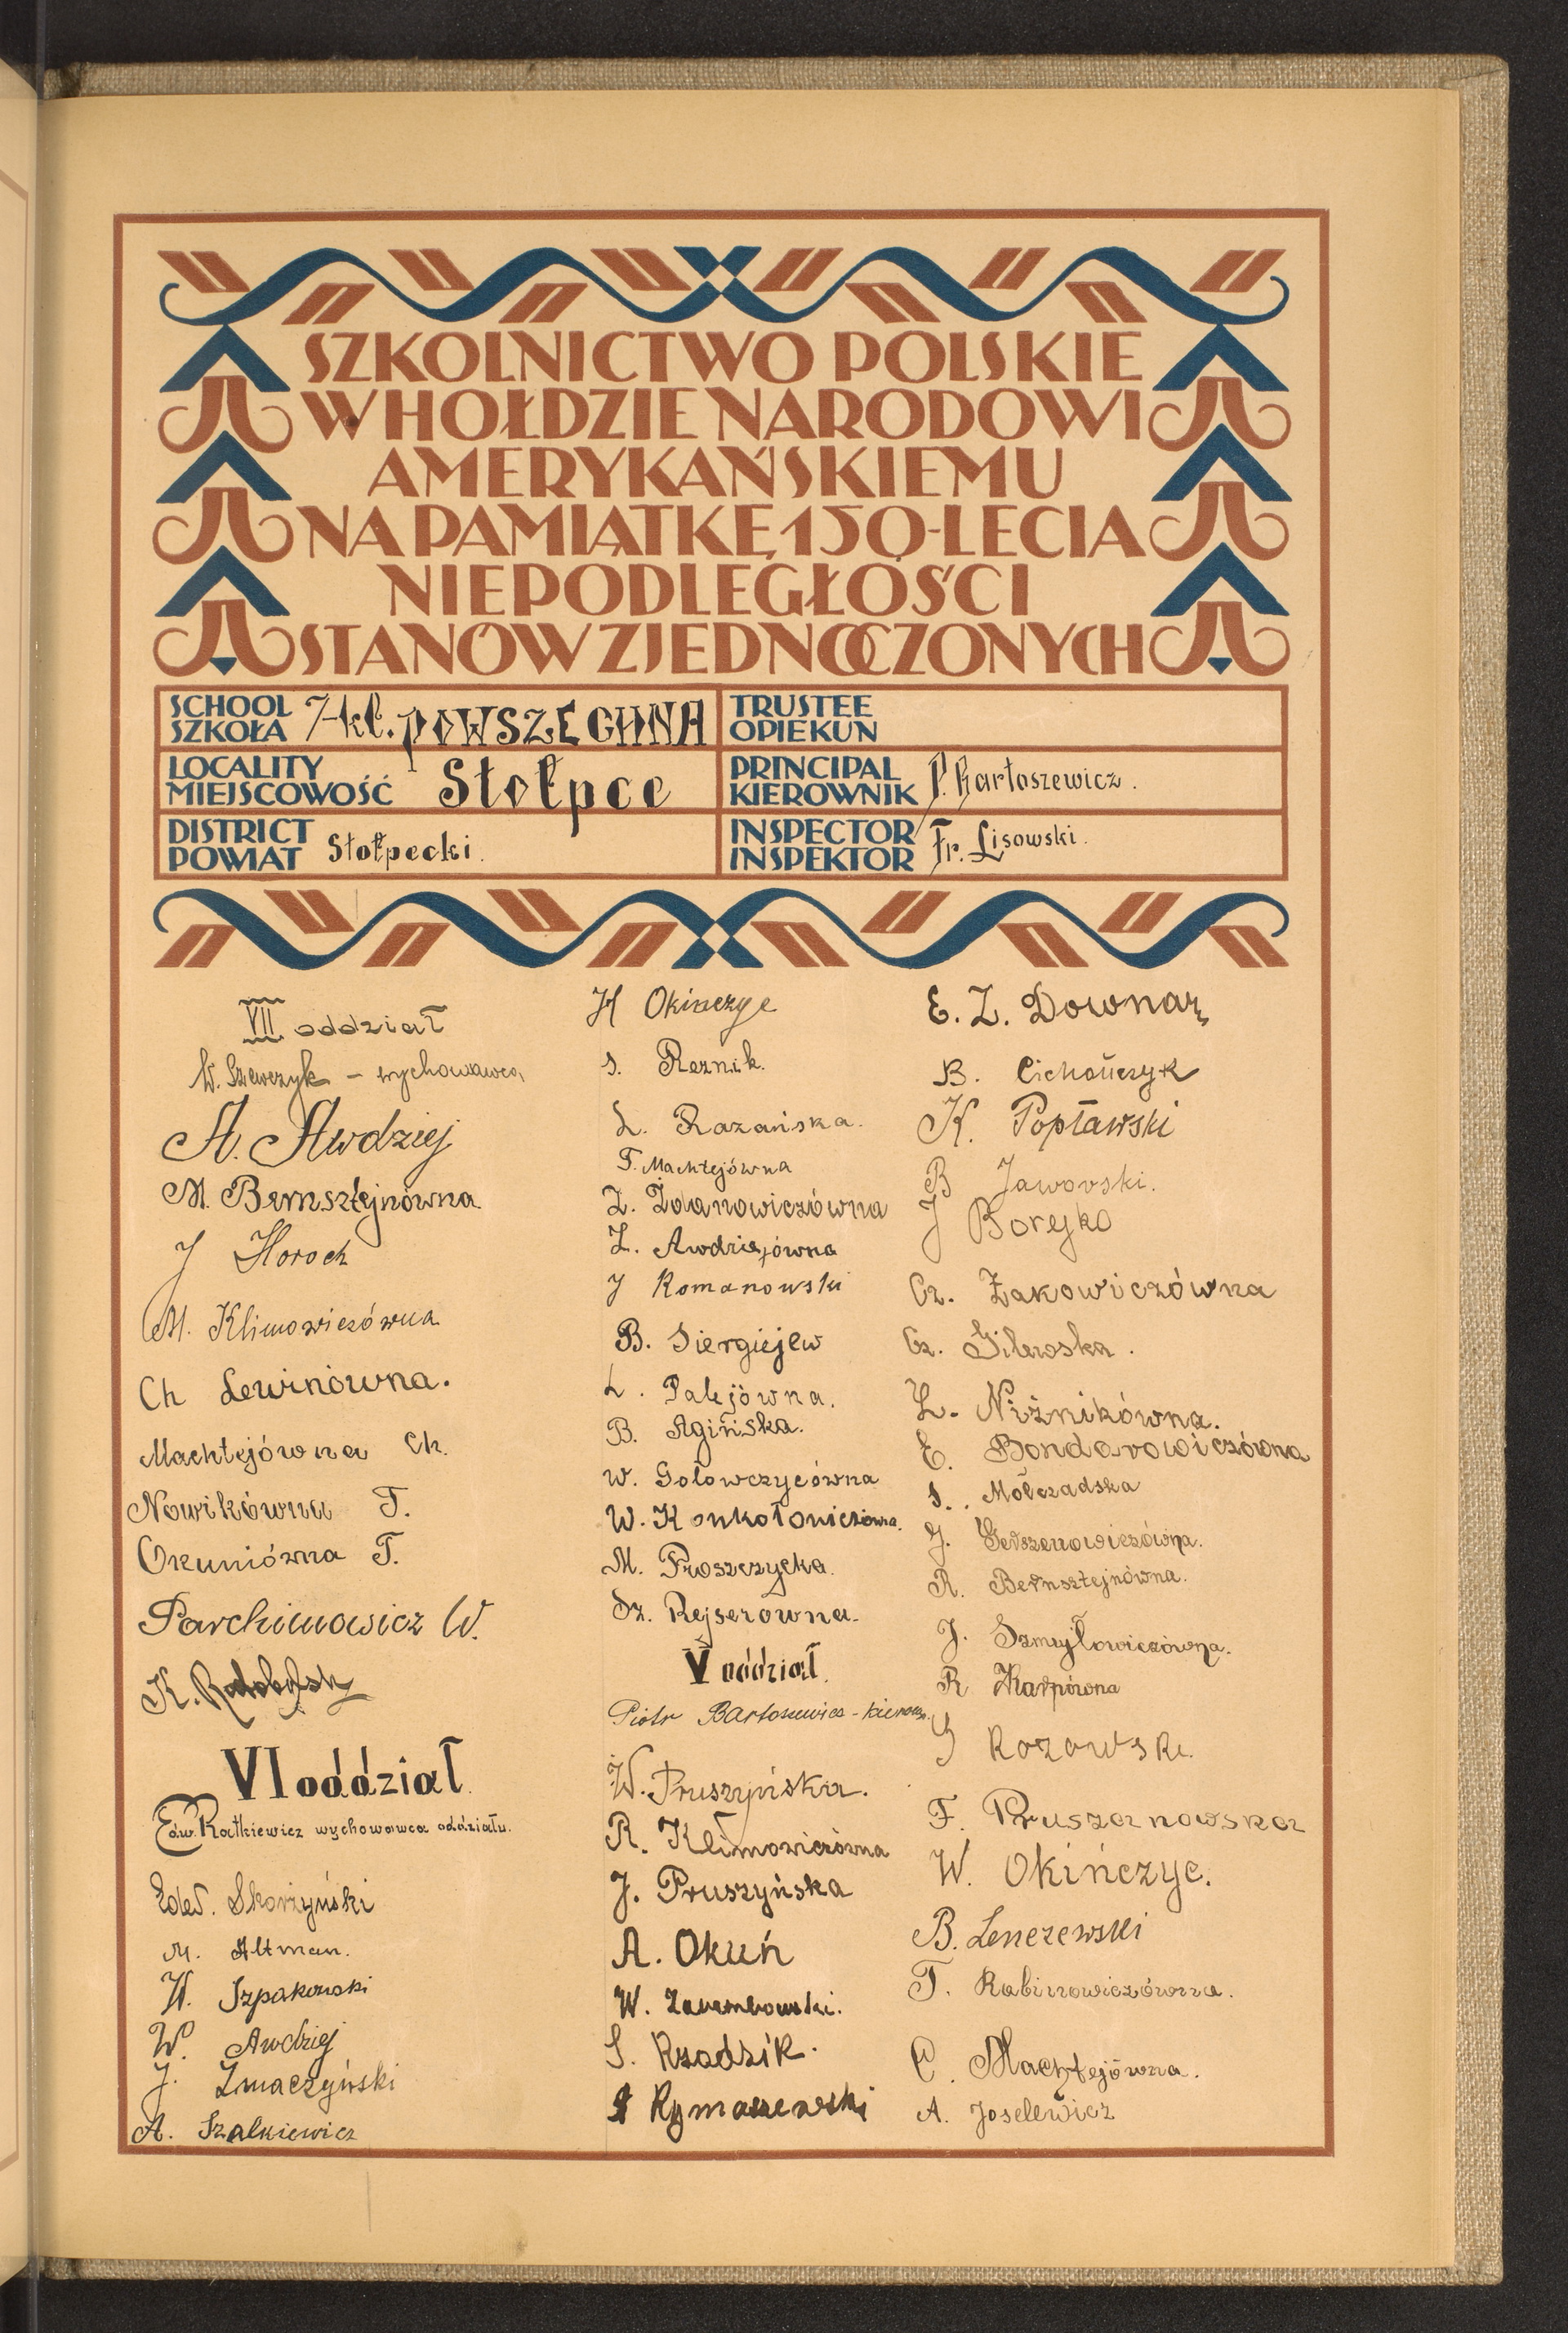 SZKOLNICTWO POLSKIE
W HOŁDZIE NARODOWI
AMERYKAŃSKIEMU
NA PAMIĄTKĘ 150-LECIA
NIEPODLEGŁOŚCI
STANÓW ZJEDNOCZONYCH
SCHOOL
SZKOŁA
7-kl. POWSZECHNA
TRUSTEE
OPIEKUN
LOCALITY
MIEJSCOWOŚĆ
Stołpce
PRINCIPAL
KIEROWNIK
P. Bartoszewicz.
DISTRICT
POWIAT
Stołpecki.
INSPECTOR
INSPEKTOR
Fr. Lisowski.
VII oddział
W. Szewczyk - wychowawca
A. Awdziej
M. Bernsztejnówna
J Horoch
M. Klimowiczówna
Ch Lewinówna.
Machtejówna Ch.
Nowikówna T.
Okuniówna T.
Parchimowicz W.
K.
VI oddział
Edw. Ratkiewicz wychowawca oddziału.
Edw. Skorzyński
M. Altman.
W. Szpakowski
W. Awdziej
J. Zmaczyński
A. Szalkiewicz
H Okinczyc
S. Reznik.
L. Razańska.
T. Machtejówna
Z. Żdanowiczówna
Z. Awdziejówna
J Romanowski
B. Siergiejew
L. Palejówna.
B. Agińska.
W. Gołowczycówna
W. Konkołowiczówna.
M. Proszczycka.
Sz. Rejserówna.
V oddział.
Piotr Bartoszewicz - kierown.
W. Pruszyńska.
R. Klimowiczówna
J. Pruszyńska
A. Okuń
W.
S. Rzadzik.
Rymaszewski
E. Z. Downar
B. Cichończyk
K. Popławski
B Jaworski.
J Borejko
Cz. Żakowiczówna
Cz. Gilewska.
L. Niżnikówna.
E. Bondarowiczówna
S. Mołczadska
J. Gerszenowiczówna.
R. Bernsztejnówna.
J. Szmyjłowiczówna.
R Karpówna
S Rozowski.
F. Pruszanowska
W. Okińczyc.
B. Lenczewski
T. Rabinowiczówna.
C. Machtejówna.
A. Joselewicz